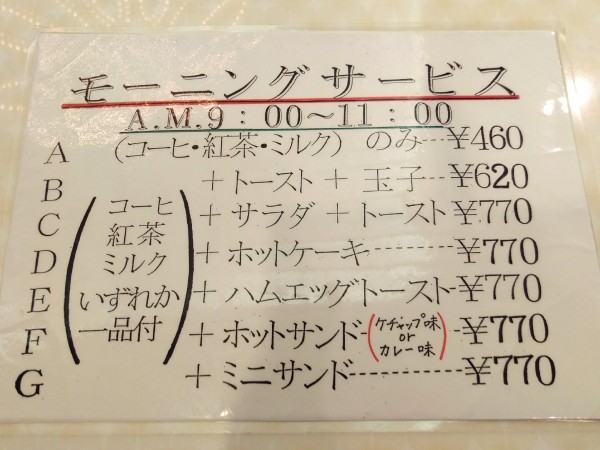 モーニングサービス
A.M.9：00～11：00
A (コーヒ・紅茶・ミルク) のみ---¥460
B ＋トースト＋玉子---¥620
C ＋サラダ＋トースト¥770
D ＋ホットケーキ---------¥770
E ＋ハムエッグトースト-¥770
F ＋ホットサンド(ケチャップ味 or カレー味)-¥770
G ＋ミニサンド-----------¥770
(コーヒ
紅茶
ミルク
いずれか
一品付)